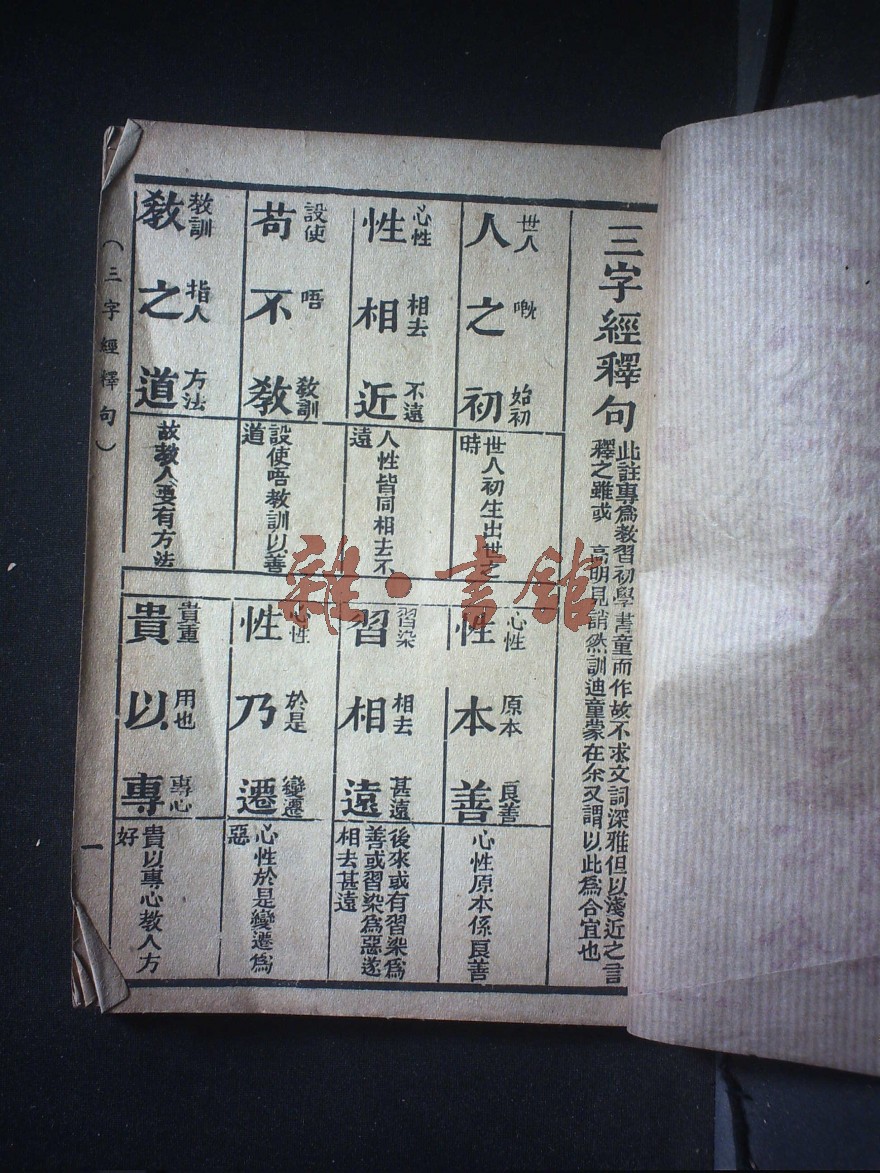 三字經釋句
此註專為教習初學書童而作故不求文詞深雅但以淺近之言
釋之雖或 高明見誚然訓迪童蒙在余又謂以此為合宜也
人之初
世人 嘅 始初
世人初生出世之
時
性本善
心性 原本 良善
心性原本係良善
性相近
心性 相去 不遠
人性皆同相去不
遠
習相遠
習染 相去 甚遠
後來或有習染為
善或習染為惡遂
相去甚遠
苟不教
設使 唔 教訓
設使唔教訓以善
道
性乃遷
心性 於是 變遷
心性於是變遷為
惡
教之道
教訓 指人 方法
故教人要有方法
貴以專
貴重 用也 專心
貴以專心教人方
好
（三字經釋句）
一
雜·書館